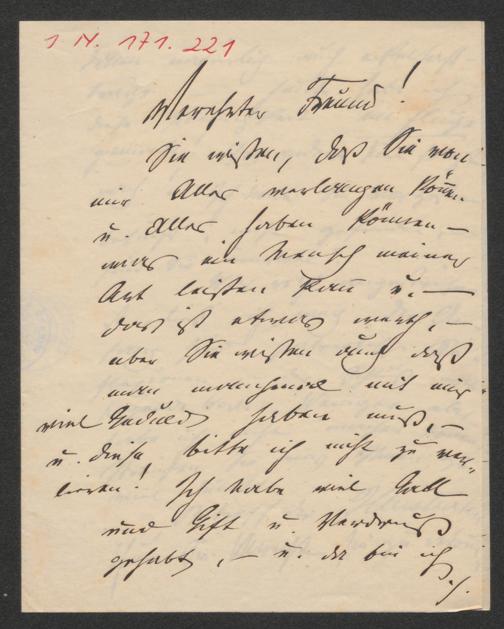 I N. 171.221
Verehrter Freund!
Sie wissen, daß Sie von
mir Alles verlangen können
u. Alles haben können –
was ein Mensch meiner
Art leisten kann u. –
das ist etwas werth, –
aber Sie wissen auch daß
man manchmal mit mir
viel Geduld haben muß, –
u. diese bitte ich nicht zu ver-
lieren! Ich habe viel Gall
und Gift u. Verdruß
gehabt, – u. da bin ich